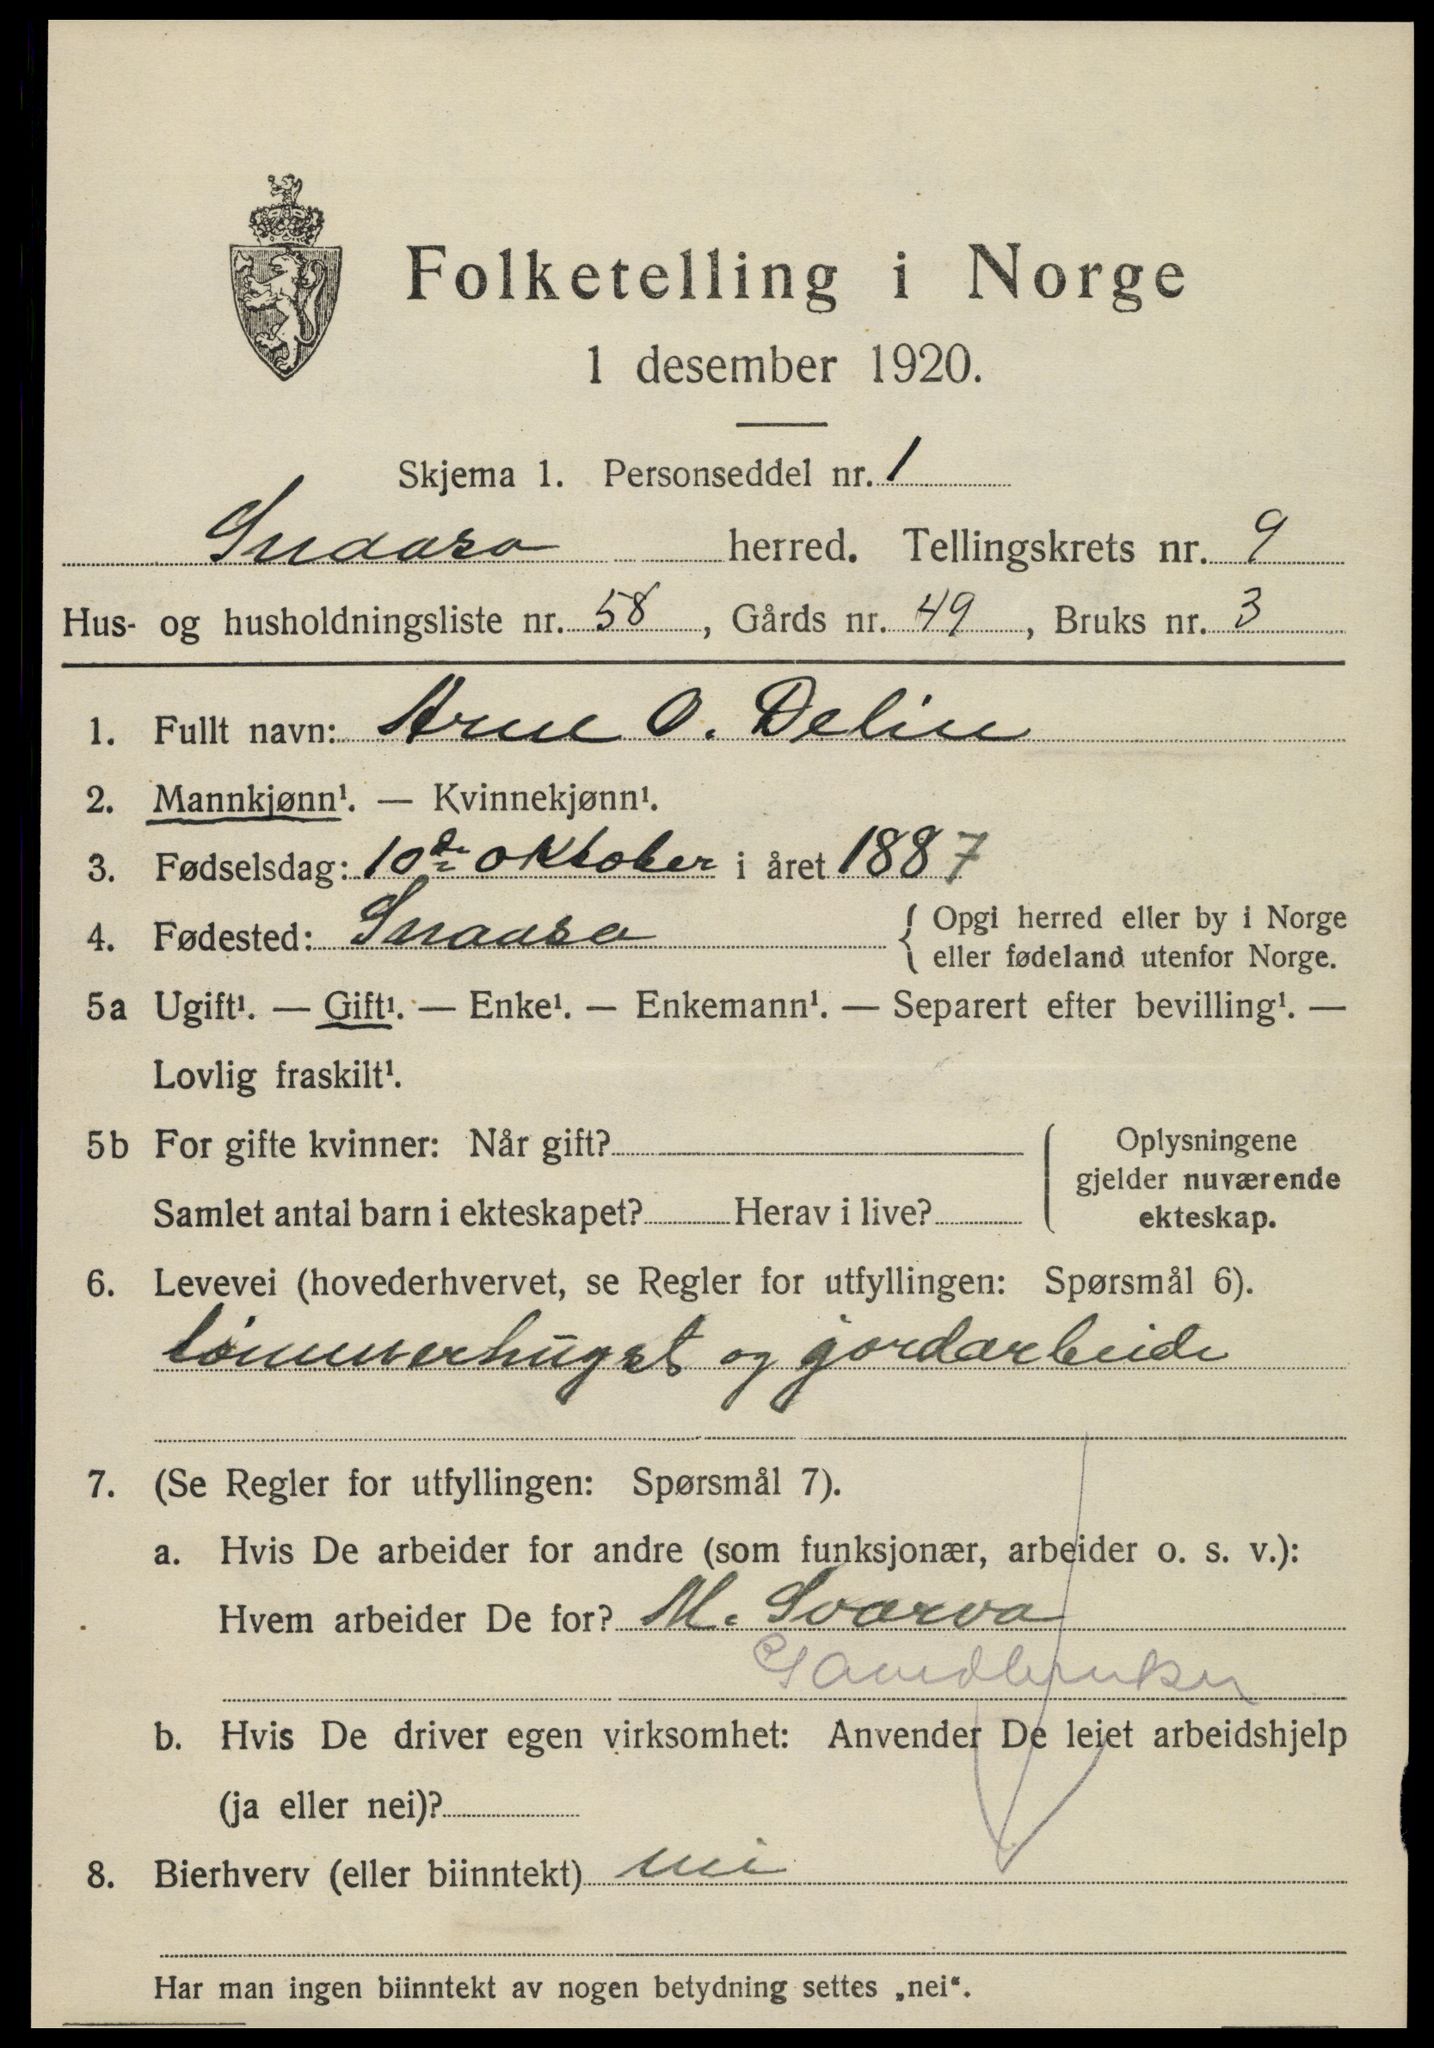 Folketelling i Norge
1 desember 1920.
Skjema 1. Personseddel nr. 1
Snaasa herred. Tellingskrets nr. 9
Hus- og husholdningsliste nr. 58, Gårds nr. 49, Bruks nr. 3
1. Fullt navn: Arne O. Delin
2. Mannkjønn¹. — Kvinnekjønn¹.
3. Fødselsdag: 10de oktober i året 1887
4. Fødested: Snaasa { Opgi herred eller by i Norge
eller fødeland utenfor Norge.
5a Ugift¹. — Gift¹. — Enke¹. — Enkemann¹. — Separert efter bevilling¹. —
Lovlig fraskilt¹.
5b For gifte kvinner: Når gift? Oplysningene
gjelder nuværende
Samlet antal barn i ekteskapet? Herav i live? ekteskap.
6. Levevei (hovederhvervet, se Regler for utfyllingen: Spørsmål 6).
tømmerhugst og jordarbeide
7. (Se Regler for utfyllingen: Spørsmål 7).
a. Hvis De arbeider for andre (som funksjonær, arbeider o. s. v.):
Hvem arbeider De for? M. Svarva
Gaardbruker
b. Hvis De driver egen virksomhet: Anvender De leiet arbeidshjelp
(ja eller nei)?
8. Bierhverv (eller biinntekt) nei
Har man ingen biinntekt av nogen betydning settes „nei“.